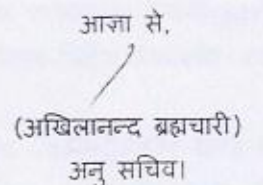 आज्ञा से,
(अखिलानन्द ब्रह्मचारी)
अनु सचिव।